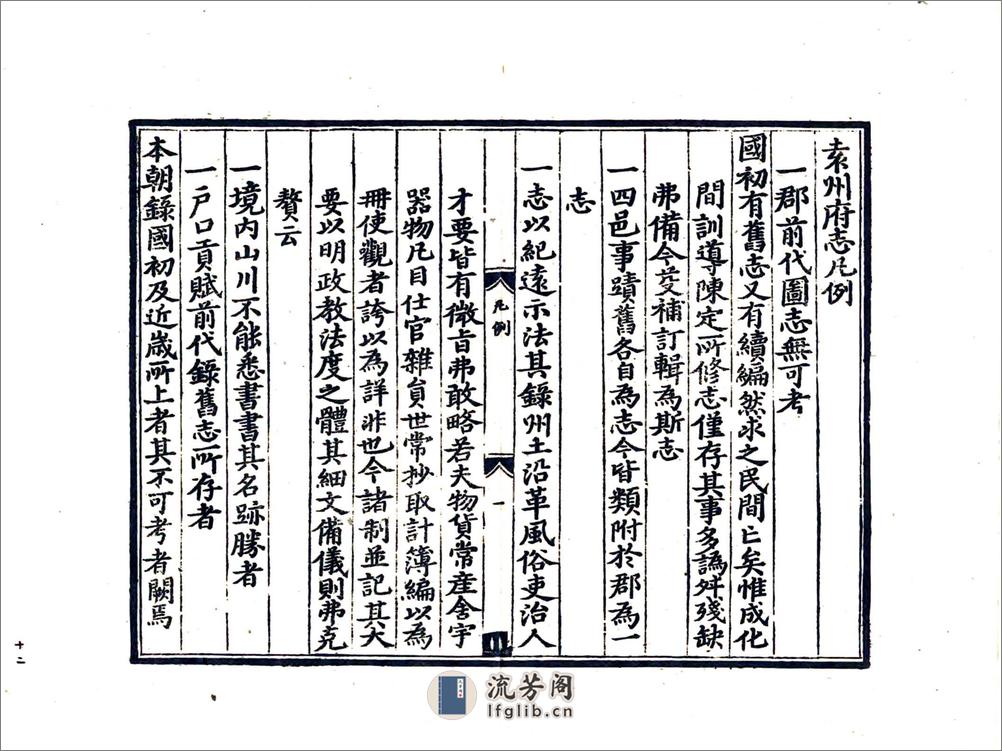 袁州府志凡例
一郡前代圖志無可考
國初有舊志又有續編然求之民間亡矣惟成化
間訓導陳定所修志僅存其事多譌舛殘缺
弗備今芟補訂輯為斯志
一四邑事蹟舊各自為志今皆類附於郡為一
志
一志以紀遠示法其錄州土沿革風俗吏治人
凡例
一
才要皆有微旨弗敢略若夫物貨常産舍宇
器物凡目仕官雜員世常抄取計簿編以為
冊使觀者誇以為詳非也今諸制並記其大
要以明政教法度之體其細文備儀則弗克
贅云
一境內山川不能悉書書其名跡勝者
一戶口貢賦前代錄舊志所存者
本朝錄國初及近歲所上者其不可考者闕焉
十二
流芳阁
lfglib.cn